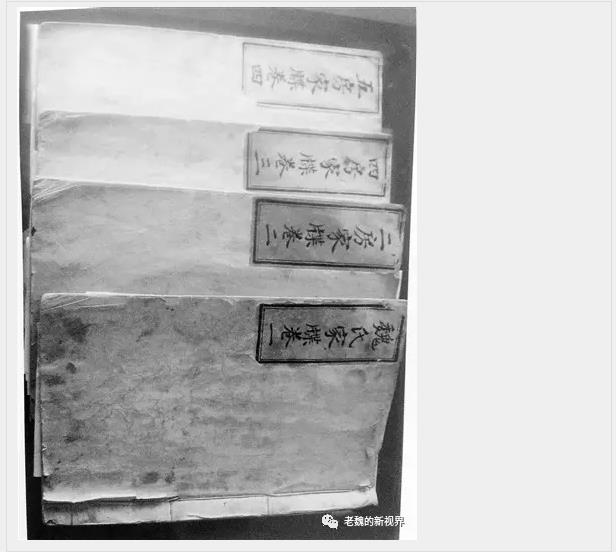 五房家牒卷四
四房家牒卷三
二房家牒卷二
魏氏家牒卷一
老魏的新视界